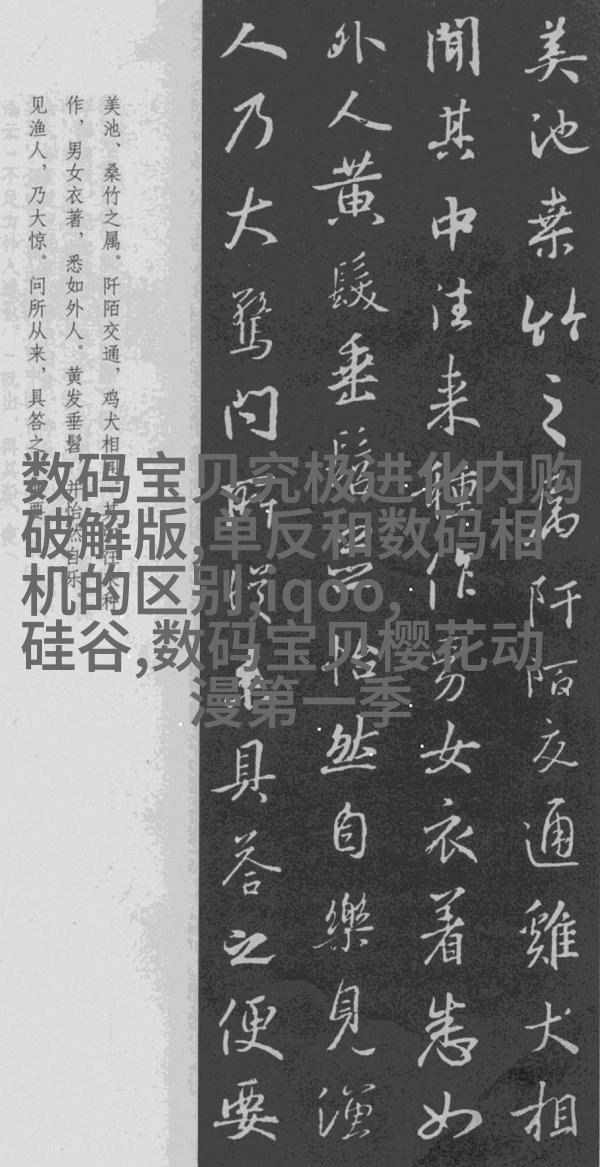 美池桒竹之属阡陌交通雞犬相
聞其中往来種作男女衣着悉如
外人黃髮垂髫並怡然自樂見漁
人乃大驚問所從来具答之便要
美池、桑竹之属。阡陌交通，鸡犬相闻。其中往来种
作，男女衣著，悉如外人。黄发垂髫，并怡然自乐。
见渔人，乃大惊。问所从来，具答之。便要
数码宝贝究极进化内购
破解版,单反和数码相
机的区别,iqoo,
硅谷,数码宝贝樱花动
漫第一季